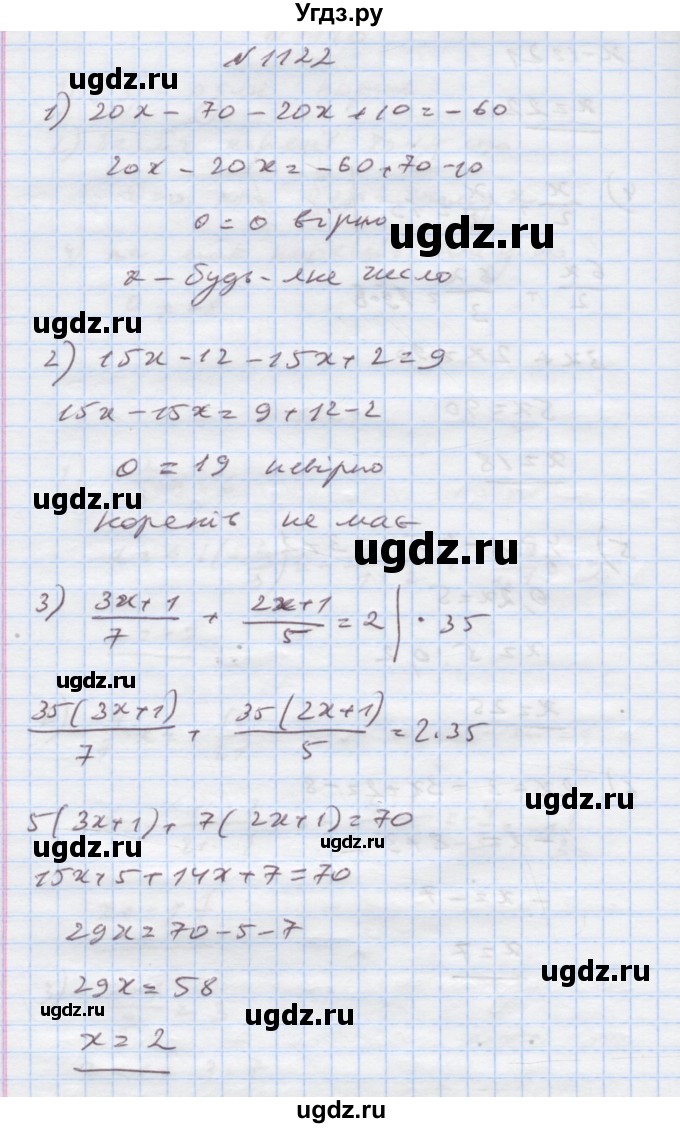 Угдз.ру
N 1122
ugdz.ru
1) 20x - 70 - 20x + 10 = -60
20x - 20x = -60 + 70 - 10
0 = 0 вірно
ugdz.ru
x - будь-яке число
ugdz.ru
2) 15x - 12 - 15x + 2 = 9
15x - 15x = 9 + 12 - 2
0 = 19 невірно
ugdz.ru
коренів не має
ugdz.ru
3) (3x+1)/7 + (2x+1)/5 = 2 | · 35
ugdz.ru
35(3x+1)/7 + 35(2x+1)/5 = 2·35
ugdz.ru
5(3x+1) + 7(2x+1) = 70
ugdz.ru ugdz.ru
15x + 5 + 14x + 7 = 70
29x = 70 - 5 - 7
ugdz.ru
29x = 58
ugdz.ru ugdz.ru
x = 2
ugdz.ru